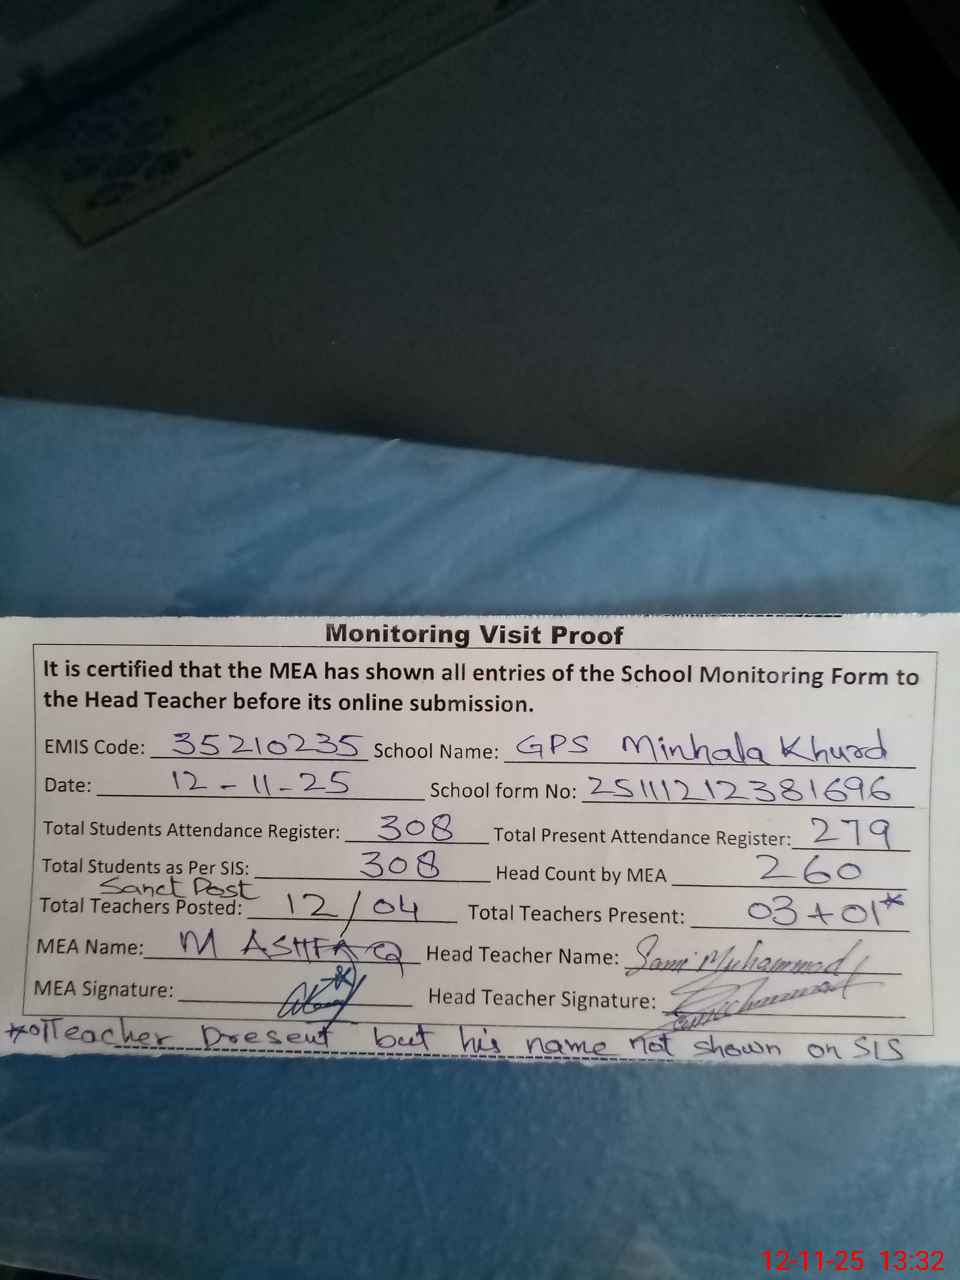 Monitoring Visit Proof
It is certified that the MEA has shown all entries of the School Monitoring Form to
the Head Teacher before its online submission.
EMIS Code: 35210235 School Name: GPS Minhala Khurd
Date: 12-11-25 School form No: 25111212381696
Total Students Attendance Register: 308 Total Present Attendance Register: 279
Total Students as Per SIS: 308 Head Count by MEA 260
Sanct Post
Total Teachers Posted: 12/04 Total Teachers Present: 03+01*
MEA Name: M ASHFAQ Head Teacher Name: Sami Muhammad
MEA Signature: Head Teacher Signature:
*01 Teacher Present but his name not shown on SIS
12-11-25 13:32